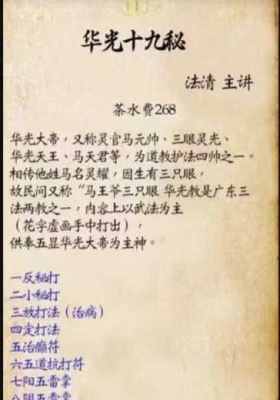 华光十九秘
法清 主讲
茶水费268
华光大帝，又称灵官马元帅、三眼灵光、
华光天王、马天君等，为道教护法四帅之一。
相传他姓马名灵耀，因生有三只眼，
故民间又称“马王爷三只眼 华光教是广东三
法两教之一，内容上以武法为主
（花字虚画手中打出），
供奉五显华光大帝为主神。
一反秘打
二小秘打
三放打法（治病）
四定打法
五治癫符
六五道抗打符
七阳五雷掌
八阴五雷掌